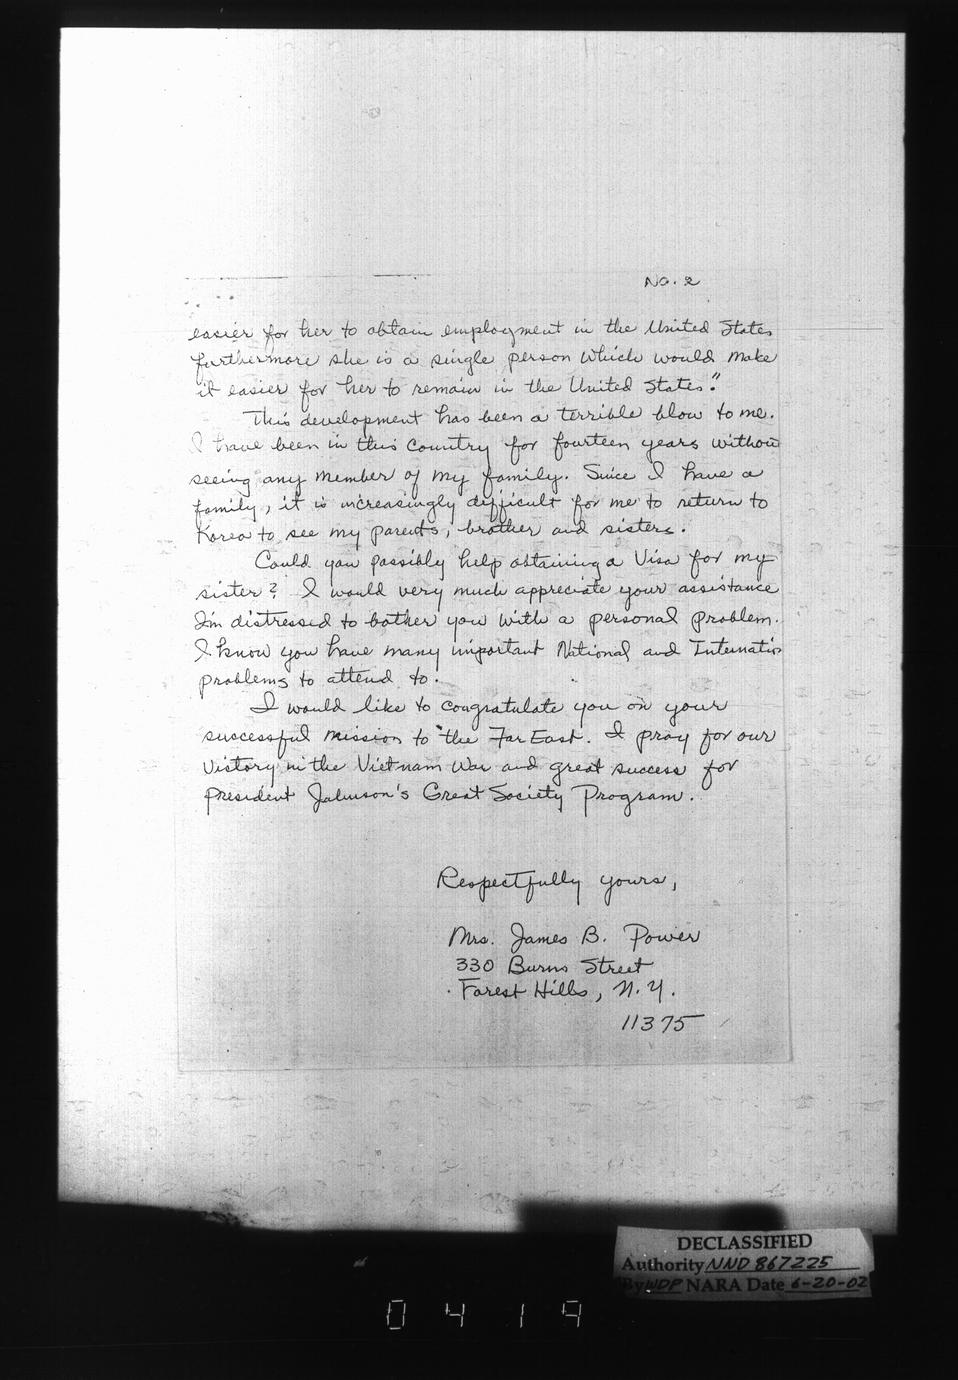 No. 2
easier for her to obtain employment in the United States
furthermore she is a single person which would make
it easier for her to remain in the United States."
This development has been a terrible blow to me.
I have been in this Country for fourteen years without
seeing any member of my family. Since I have a
family, it is increasingly difficult for me to return to
Korea to see my parents, brother and sisters.
Could you possibly help obtaining a Visa for my
sister? I would very much appreciate your assistance
I'm distressed to bother you with a personal problem.
I know you have many important National and Internatio
problems to attend to.
I would like to congratulate you on your
successful mission to the Far East. I pray for our
Victory in the Vietnam War and great success for
President Johnson's Great Society Program.
Respectfully yours,
Mrs. James B. Power
330 Burns Street
Forest Hills, N.Y.
11375
DECLASSIFIED
Authority NND 867225
By WDP NARA Date 6-20-02
0419